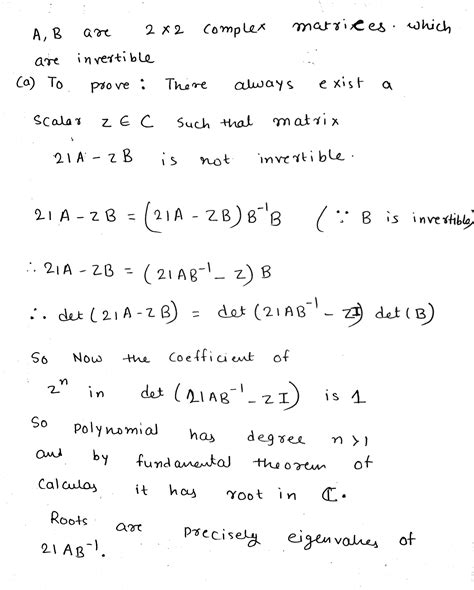 A, B are 2 x 2 complex matrices. which
are invertible
(a) To prove : There always exist a
scalar z ∈ C such that matrix
21A - zB is not invertible.
21A - zB = (21A - zB) B⁻¹B (∵ B is invertible)
∴ 21A - zB = (21AB⁻¹ - z) B
∴ det (21A - zB) = det (21AB⁻¹ - zI) det (B)
So Now the coefficient of
zⁿ in det (21AB⁻¹ - zI) is 1
So polynomial has degree n >1
and by fundamental theorem of
Calculas it has root in ℂ.
Roots are precisely eigenvalues of
21 AB⁻¹.